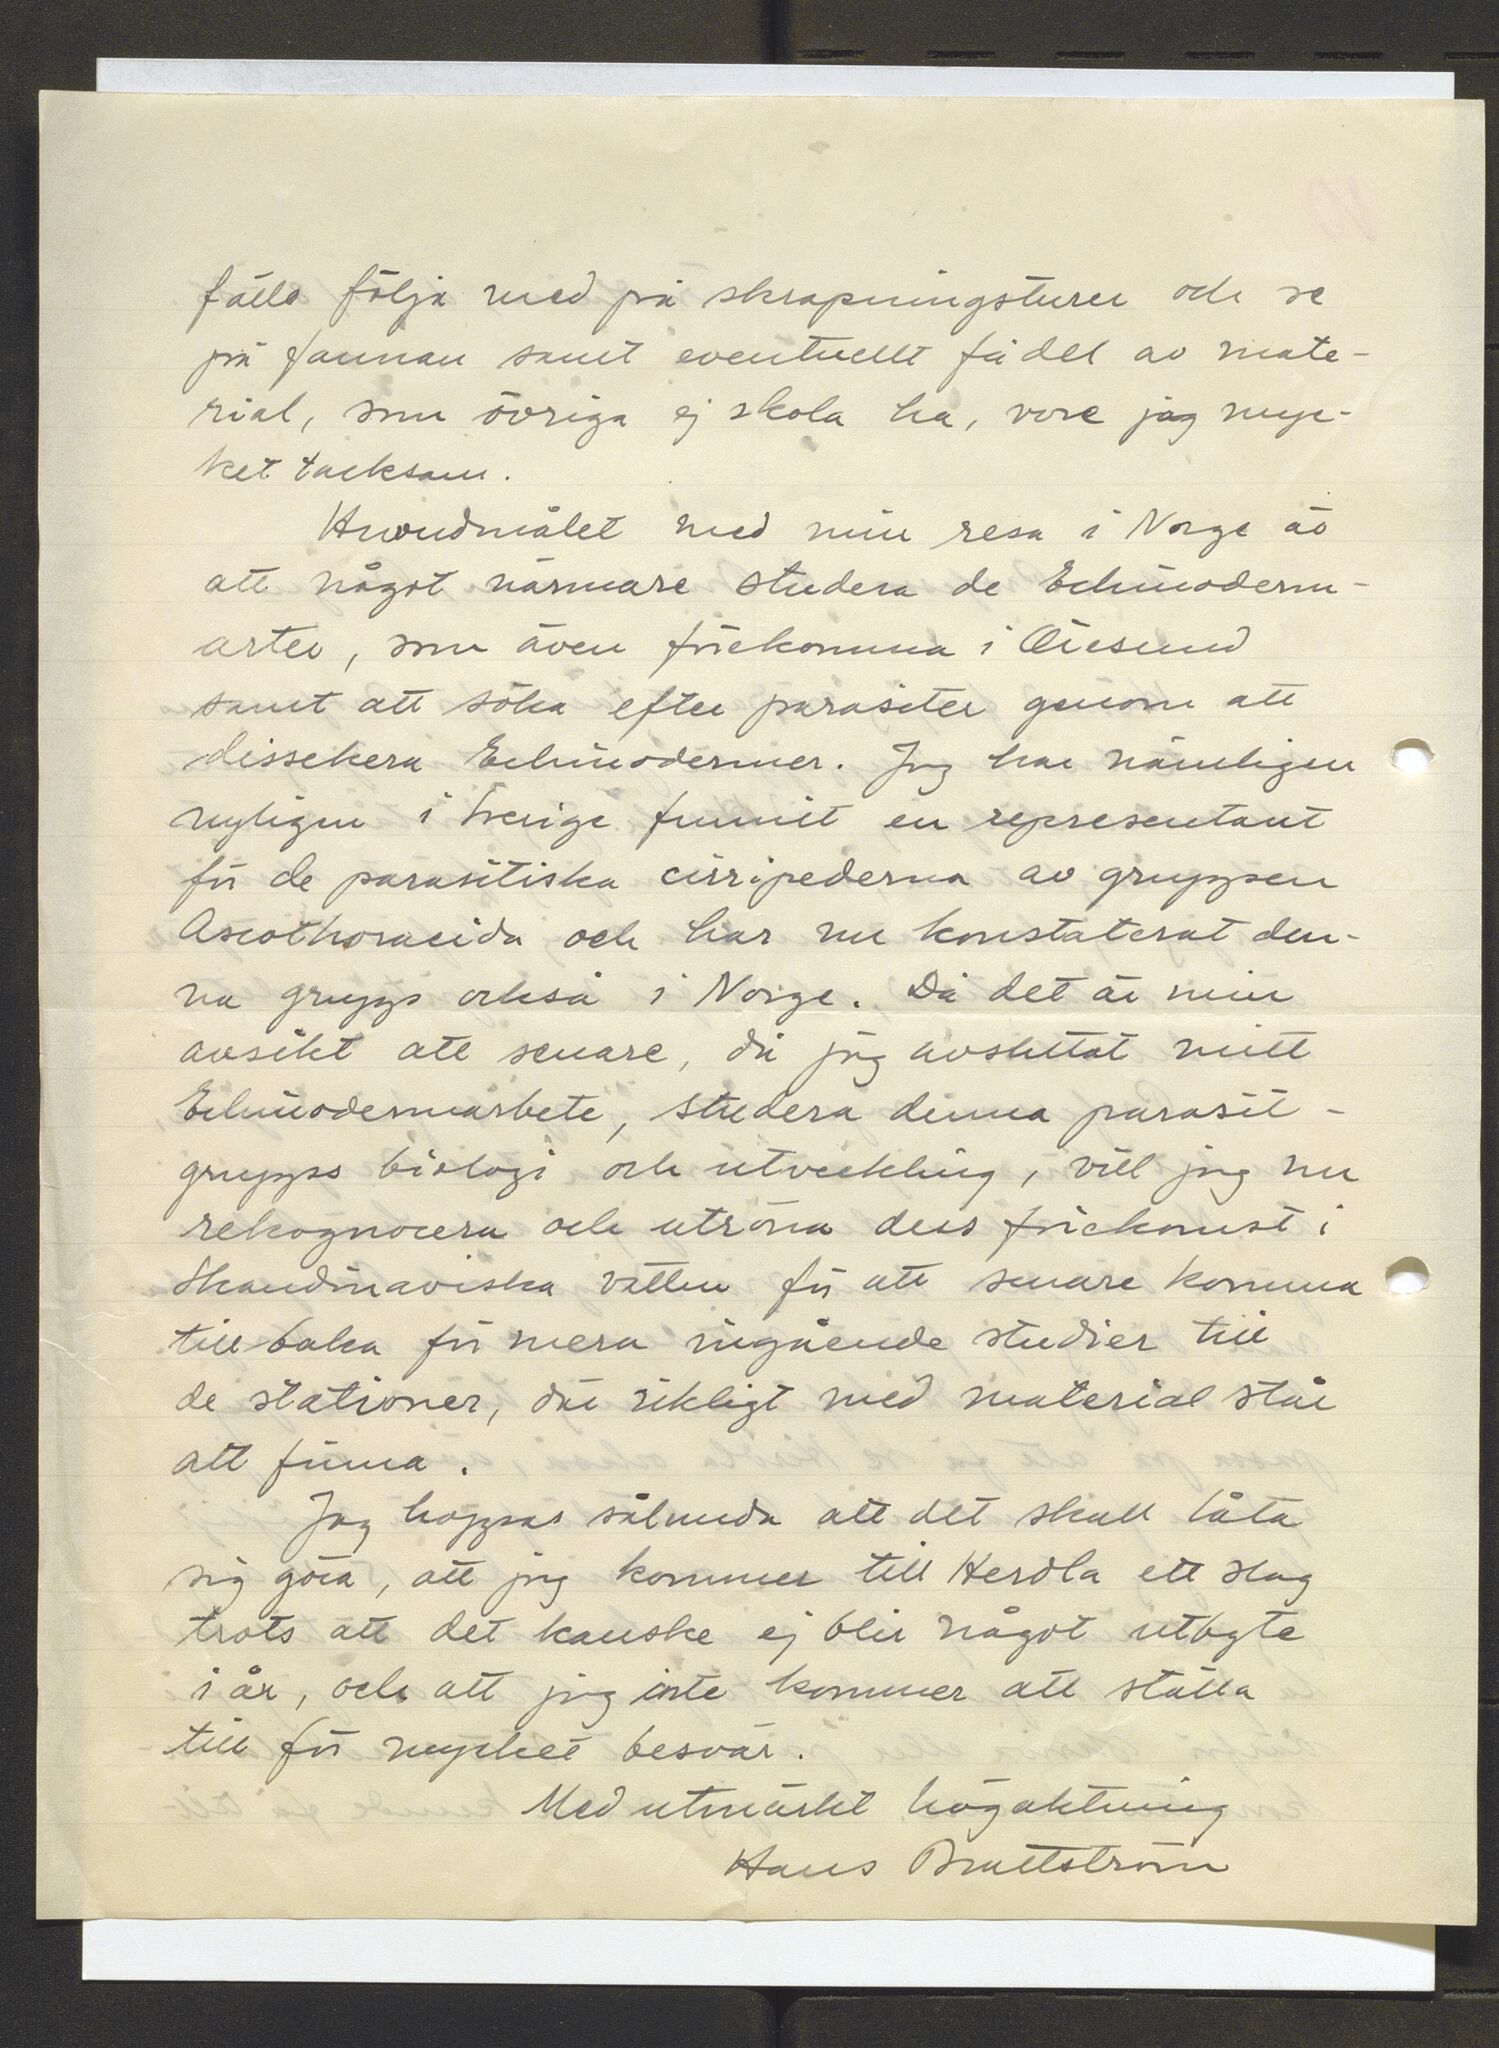 fälle följa med på skrapningsturer och se
på faunan samt eventuellt få del av mate-
rial, som övriga ej skola ha, vore jag myc-
ket tacksam.
Huvudmålet med min resa i Norge är
att något närmare studera de Echinoderm-
arter, som även förekomma i Öresund
samt att söka efter parasiter genom att
dissekera Echinodermer. Jag har nämligen
nyligen i Sverige funnit en representant
för de parasitiska cirripederna av gruppen
Ascothoracida och har nu konstaterat den-
na grupp också i Norge. Då det är min
avsikt att senare, då jag avslutat mitt
Echinodermarbete, studera denna parasit-
grupps biologi och utveckling, vill jag nu
rekognocera och utröna dess förekomst i
Skandinaviska vatten för att senare komma
tillbaka för mera ingående studier till
de stationer, där rikligt med material står
att finna.
Jag hoppas sålunda att det skall låta
sig göra, att jag kommer till Herdla ett slag
trots att det kanske ej blir något utbyte
i år, och att jag inte kommer att ställa
till för mycket besvär.
Med utmärkt högaktning
Hans Brattström